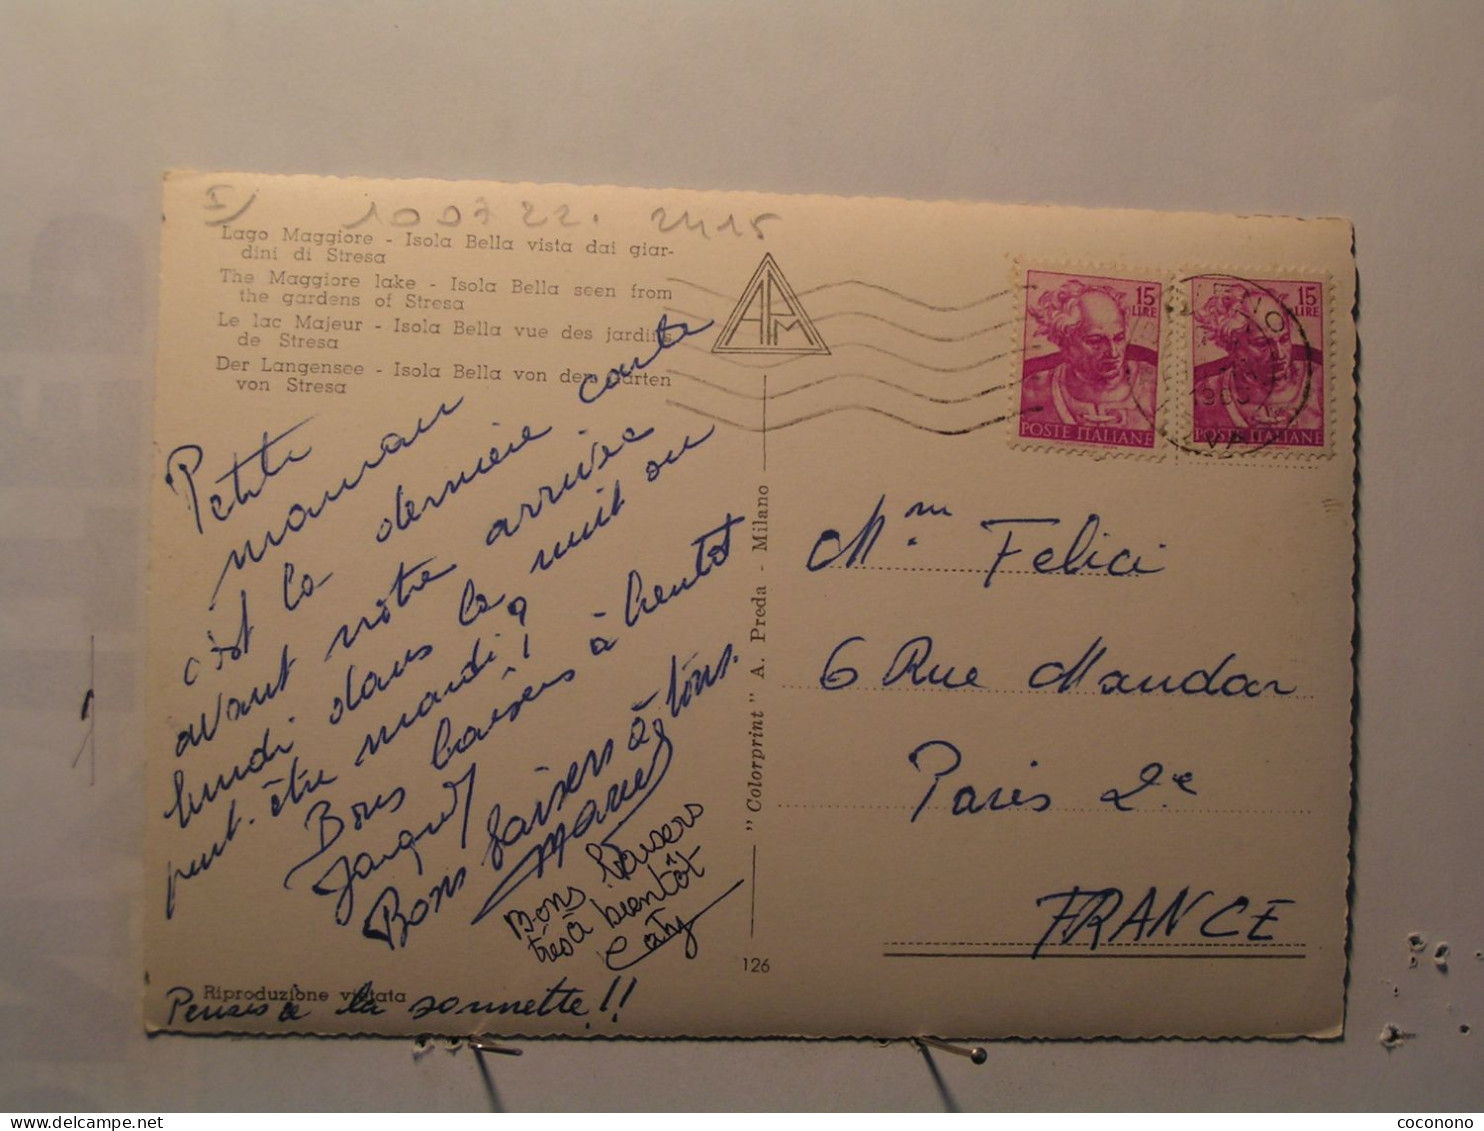 I/ 100722. 2415
Lago Maggiore - Isola Bella vista dai giar-
dini di Stresa
The Maggiore lake - Isola Bella seen from
the gardens of Stresa
Le lac Majeur - Isola Bella vue des jardins
de Stresa
Der Langensee - Isola Bella von den Garten
von Stresa
APM
15
LIRE
POSTE ITALIANE
15
LIRE
POSTE ITALIANE
Petite
maman
c'est la dernière carte
avant notre arrivée
lundi dans la nuit ou
peut-être mardi?
Bons baisers à bientot
Jacques
Bons baisers à tous.
Bons baisers
très à bientôt
Caty
Riproduzione vietata
Penses à la sonnette!!
"Colorprint" A. Preda - Milano
126
Mme Felici
6 Rue Mandar
Paris 2e
FRANCE
coconono